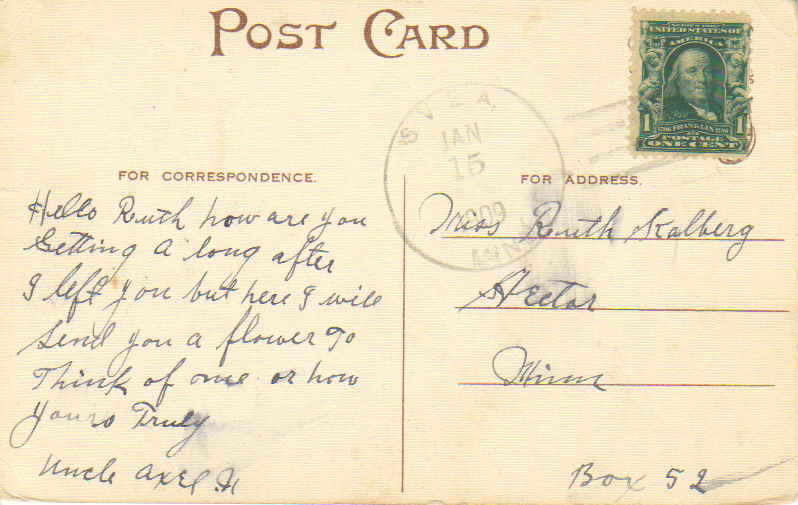 POST CARD
UNITED STATES OF
AMERICA
1 FRANKLIN 1
POSTAGE
ONE CENT
SVEA,
JAN
15
1909
MINN
FOR CORRESPONDENCE.
Hello Ruth how are you
Getting a long after
I left you but here I will
send you a flower To
Think of me or how
Yours Truly
Uncle Axel.H
FOR ADDRESS.
Miss Ruth Kalberg
Hector
Minn
Box 52